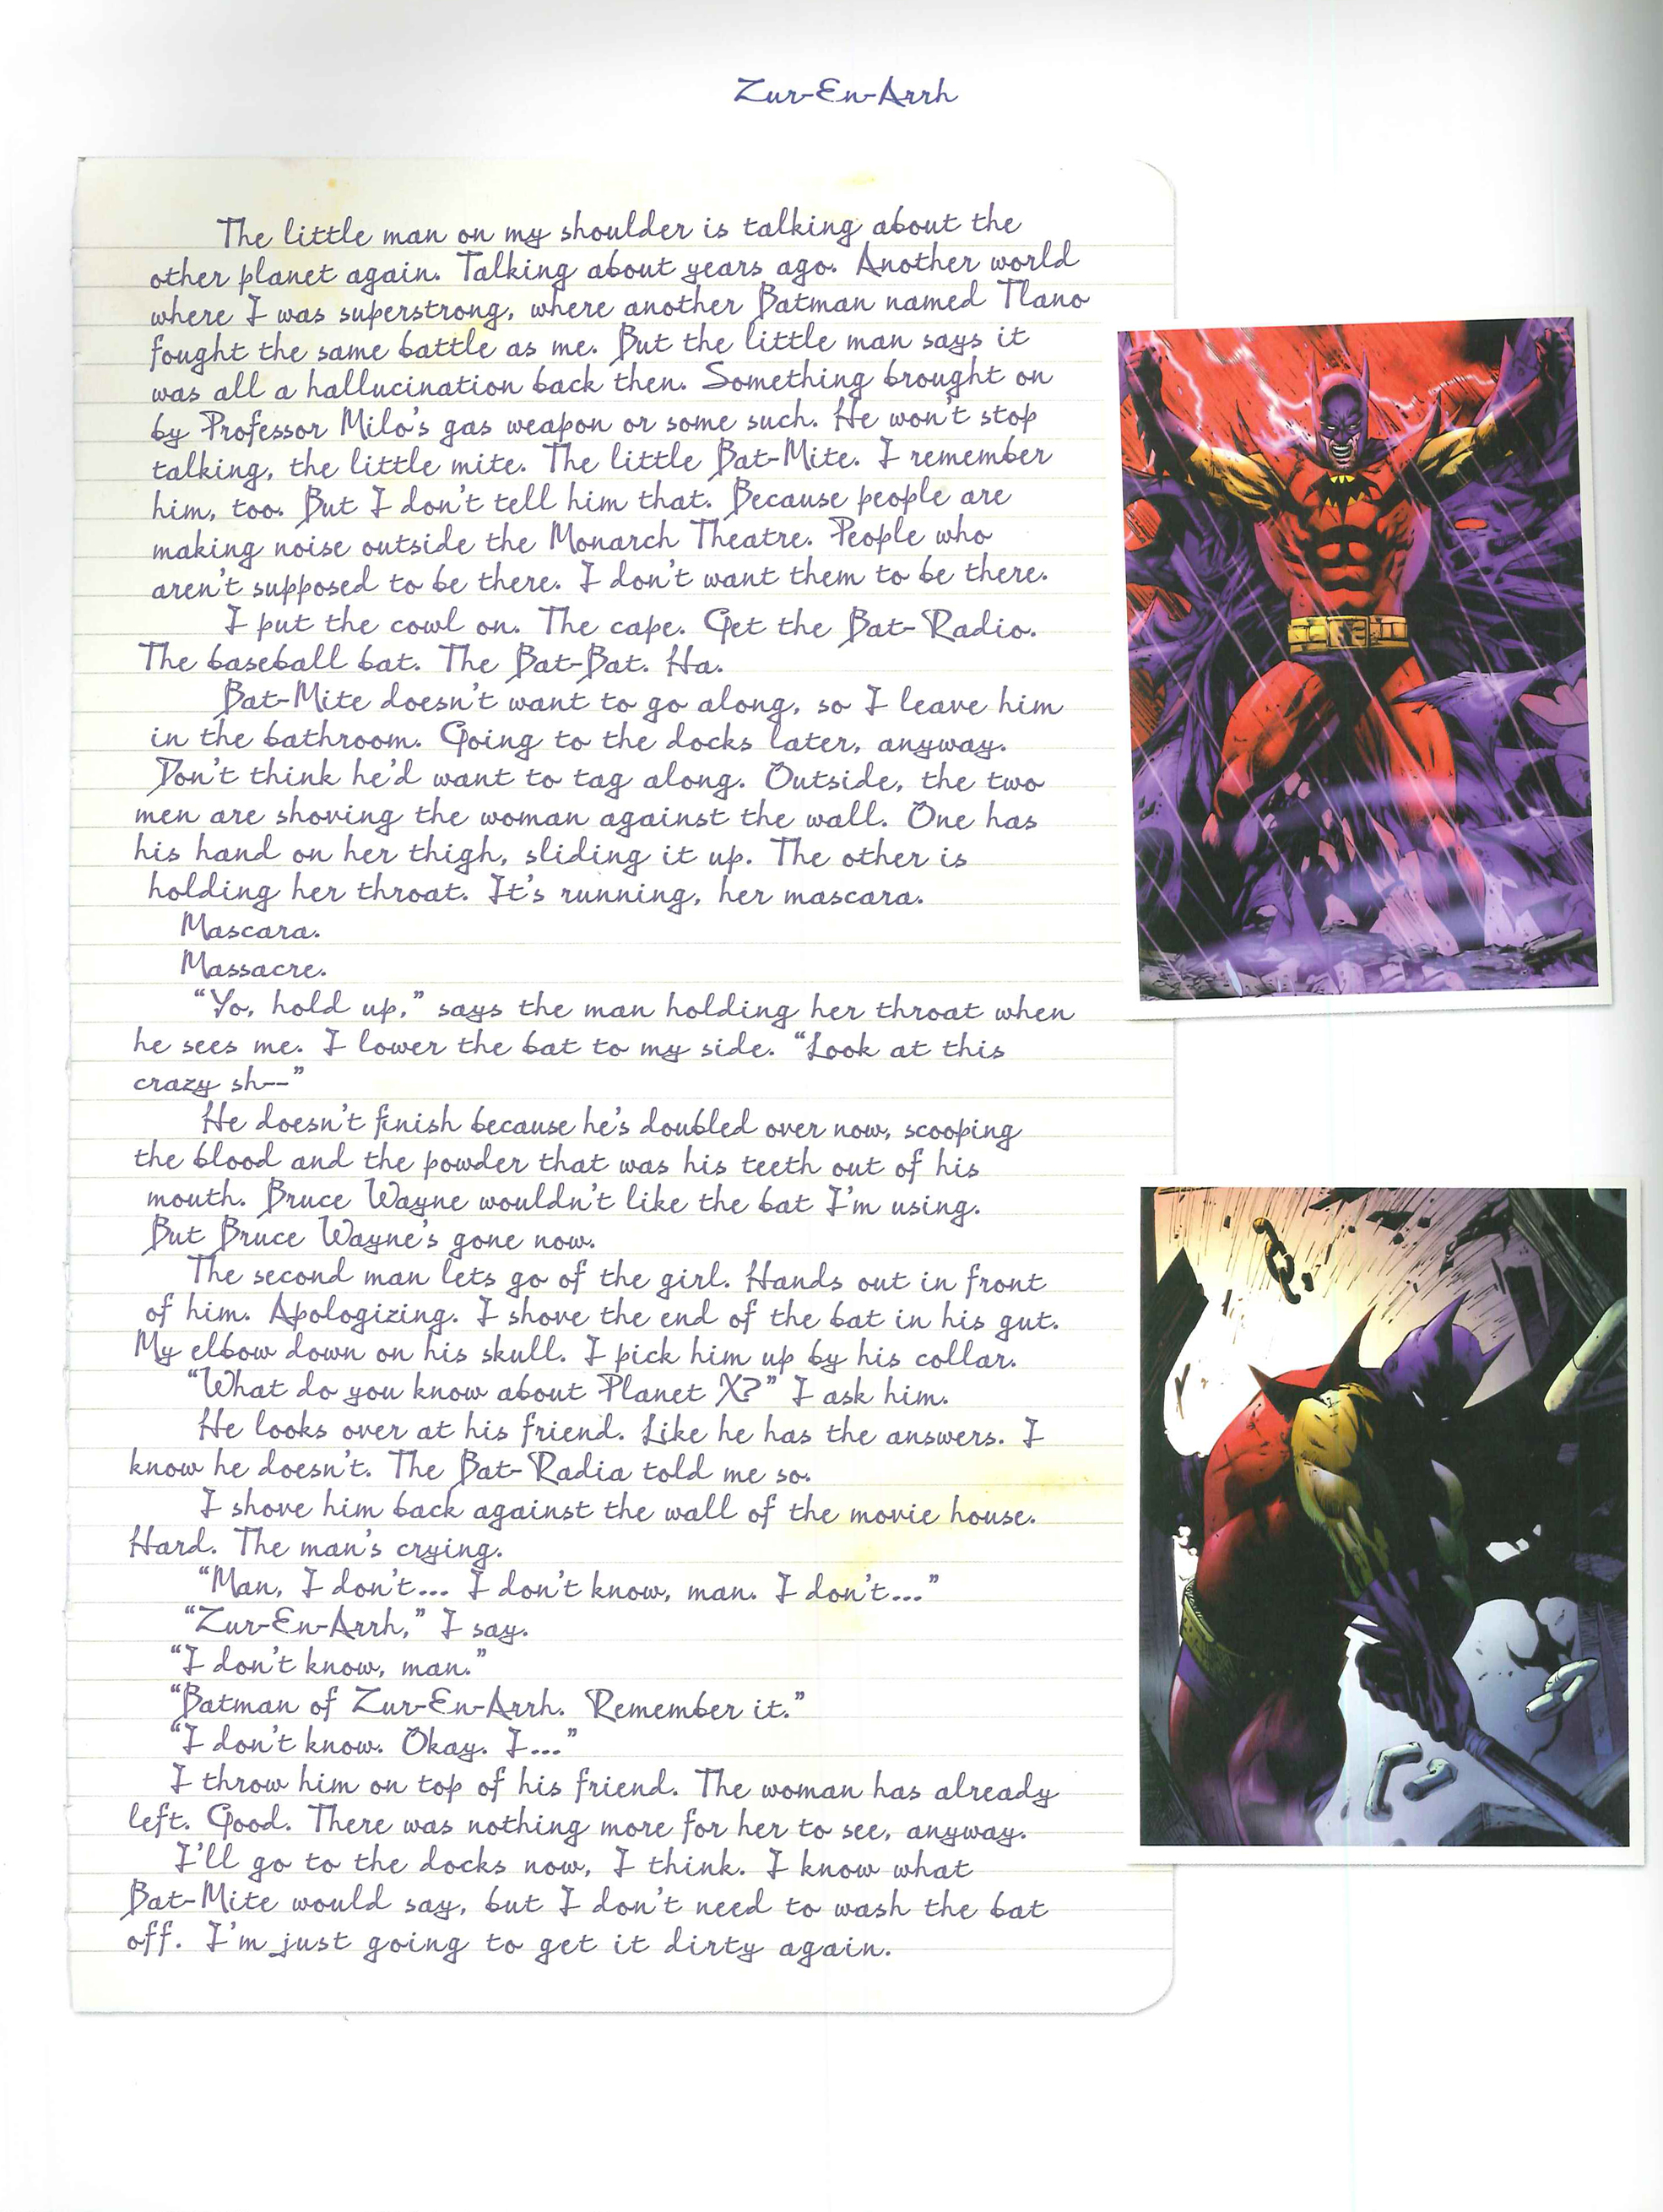 Zur-En-Arrh
The little man on my shoulder is talking about the
other planet again. Talking about years ago. Another world
where I was superstrong, where another Batman named Tlano
fought the same battle as me. But the little man says it
was all a hallucination back then. Something brought on
by Professor Milo's gas weapon or some such. He won't stop
talking, the little mite. The little Bat-Mite. I remember
him, too. But I don't tell him that. Because people are
making noise outside the Monarch Theatre. People who
aren't supposed to be there. I don't want them to be there.
I put the cowl on. The cape. Get the Bat-Radio.
The baseball bat. The Bat-Bat. Ha.
Bat-Mite doesn't want to go along, so I leave him
in the bathroom. Going to the docks later, anyway.
Don't think he'd want to tag along. Outside, the two
men are shoving the woman against the wall. One has
his hand on her thigh, sliding it up. The other is
holding her throat. It's running, her mascara.
Mascara.
Massacre.
“Yo, hold up,” says the man holding her throat when
he sees me. I lower the bat to my side. “Look at this
crazy sh--”
He doesn't finish because he's doubled over now, scooping
the blood and the powder that was his teeth out of his
mouth. Bruce Wayne wouldn't like the bat I'm using.
But Bruce Wayne's gone now.
The second man lets go of the girl. Hands out in front
of him. Apologizing. I shove the end of the bat in his gut.
My elbow down on his skull. I pick him up by his collar.
“What do you know about Planet X?” I ask him.
He looks over at his friend. Like he has the answers. I
know he doesn't. The Bat-Radia told me so.
I shove him back against the wall of the movie house.
Hard. The man's crying.
“Man, I don't... I don't know, man. I don't...”
“Zur-En-Arrh,” I say.
“I don't know, man.”
“Batman of Zur-En-Arrh. Remember it.”
“I don't know. Okay. I...”
I throw him on top of his friend. The woman has already
left. Good. There was nothing more for her to see, anyway.
I'll go to the docks now, I think. I know what
Bat-Mite would say, but I don't need to wash the bat
off. I'm just going to get it dirty again.